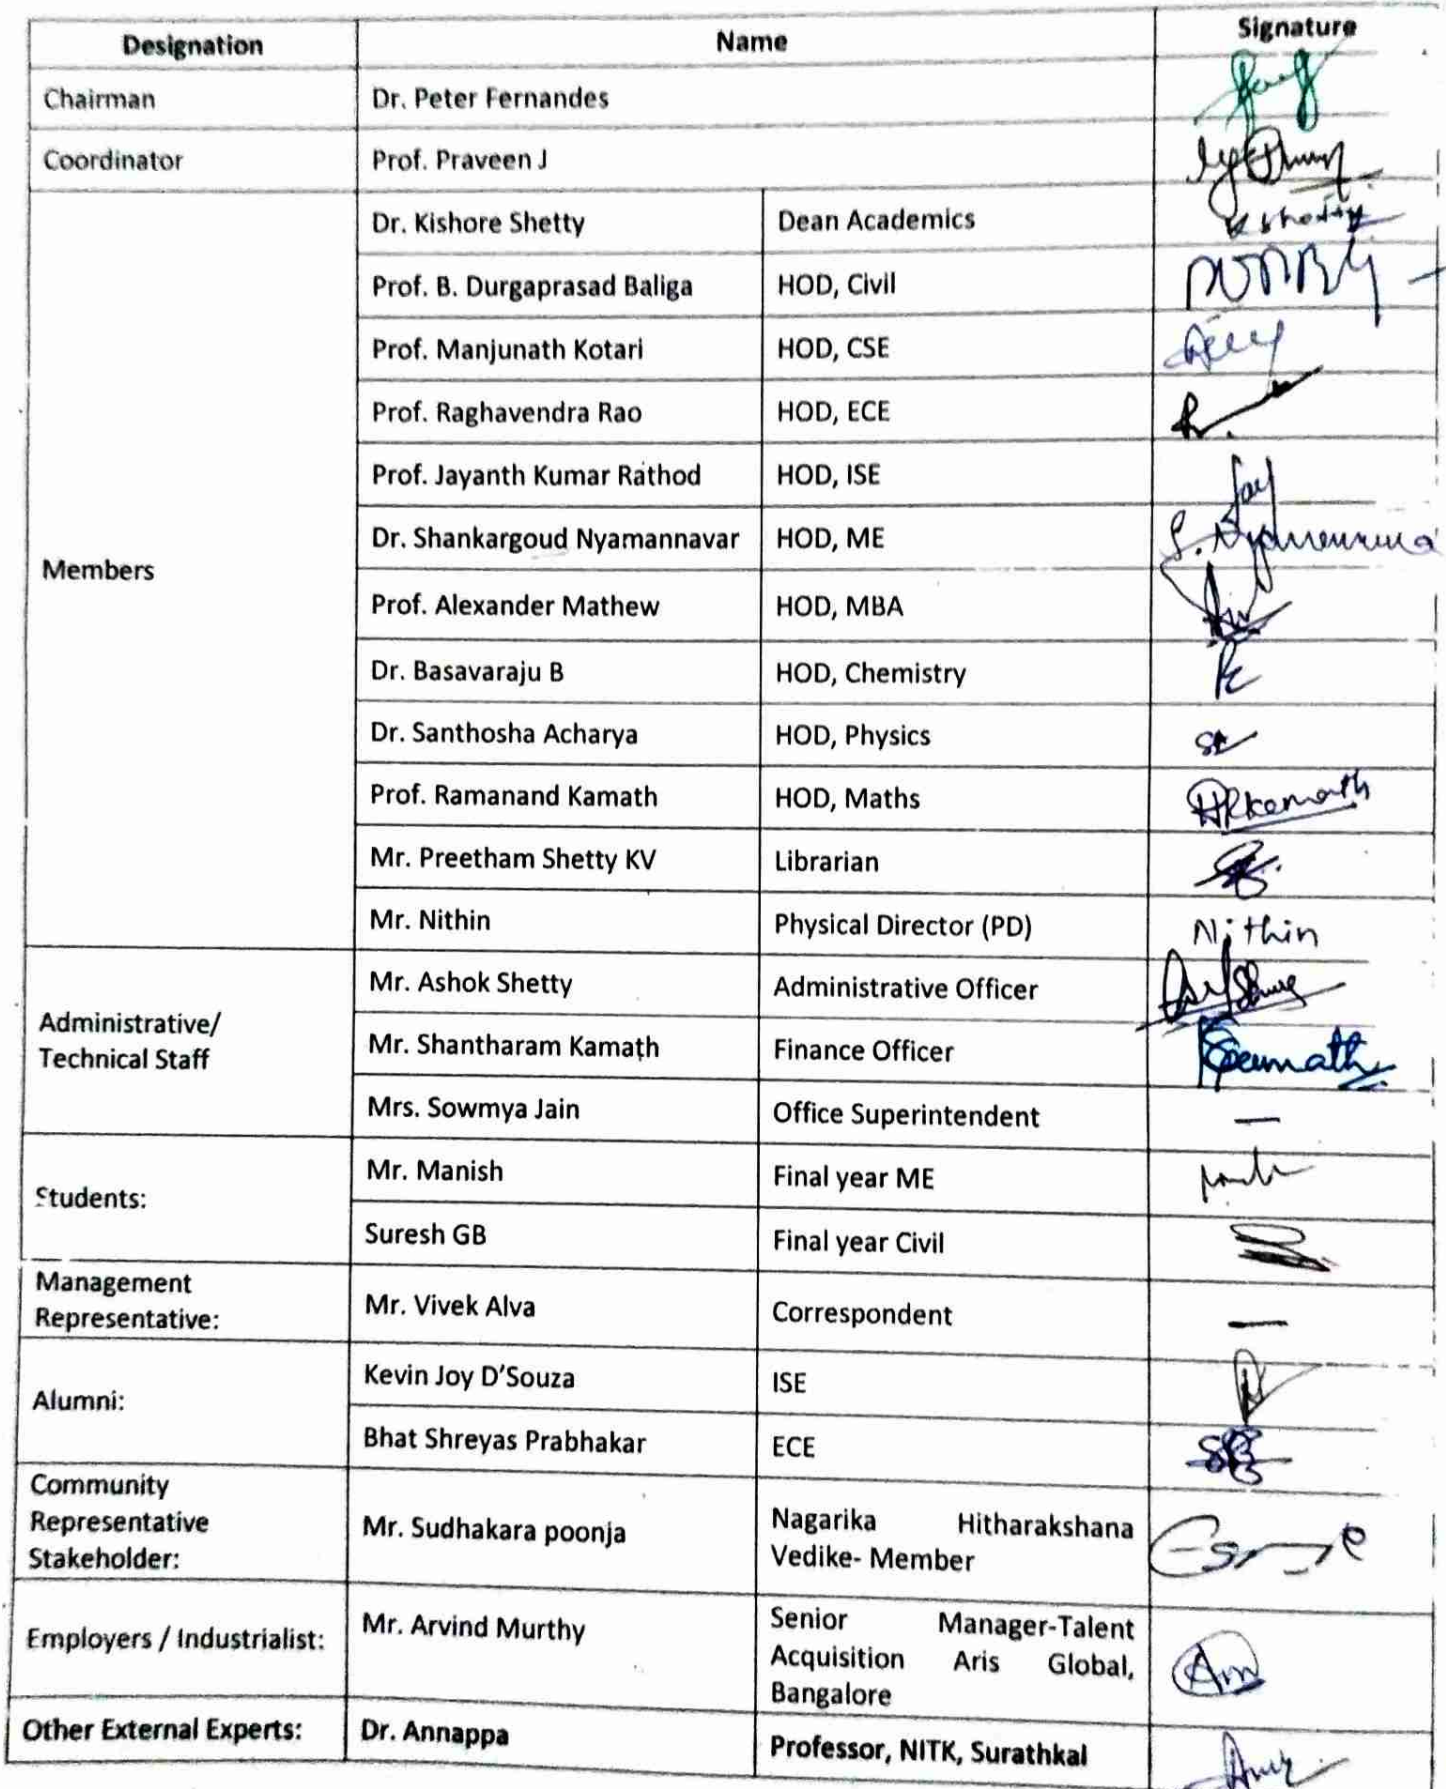 Designation Name Signature
Chairman Dr. Peter Fernandes
Coordinator Prof. Praveen J
Members
Dr. Kishore Shetty Dean Academics K Shetty
Prof. B. Durgaprasad Baliga HOD, Civil
Prof. Manjunath Kotari HOD, CSE
Prof. Raghavendra Rao HOD, ECE
Prof. Jayanth Kumar Rathod HOD, ISE Jay
Dr. Shankargoud Nyamannavar HOD, ME
Prof. Alexander Mathew HOD, MBA
Dr. Basavaraju B HOD, Chemistry
Dr. Santhosha Acharya HOD, Physics
Prof. Ramanand Kamath HOD, Maths
Mr. Preetham Shetty KV Librarian
Mr. Nithin Physical Director (PD) Nithin
Administrative/
Technical Staff
Mr. Ashok Shetty Administrative Officer
Mr. Shantharam Kamath Finance Officer
Mrs. Sowmya Jain Office Superintendent —
Students:
Mr. Manish Final year ME
Suresh GB Final year Civil
Management
Representative:
Mr. Vivek Alva Correspondent —
Alumni:
Kevin Joy D'Souza ISE
Bhat Shreyas Prabhakar ECE
Community
Representative
Stakeholder:
Mr. Sudhakara poonja
Nagarika Hitharakshana
Vedike- Member
Employers / Industrialist: Mr. Arvind Murthy
Senior Manager-Talent
Acquisition Aris Global,
Bangalore
Other External Experts: Dr. Annappa Professor, NITK, Surathkal